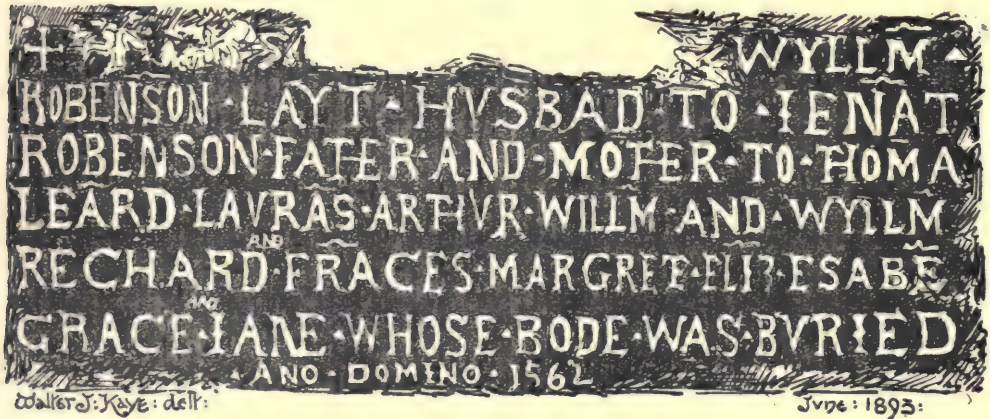 + WYLLM
ROBENSON · LAYT · HVSBAD TO · IENAT
ROBENSON · FATHER · AND · MOTHER · TO · THOMA
LEARD · LAVRAS · ARTHVR · WILLM · AND · WYLLM
RECHARD · AND FRACES · MARGRET · ELIZ · ESABE
GRACE · AND IANE · WHOSE · BODE · WAS · BVRIED
· ANO · DOMINO · 1562
Walter J: Kaye: delt: June: 1893: